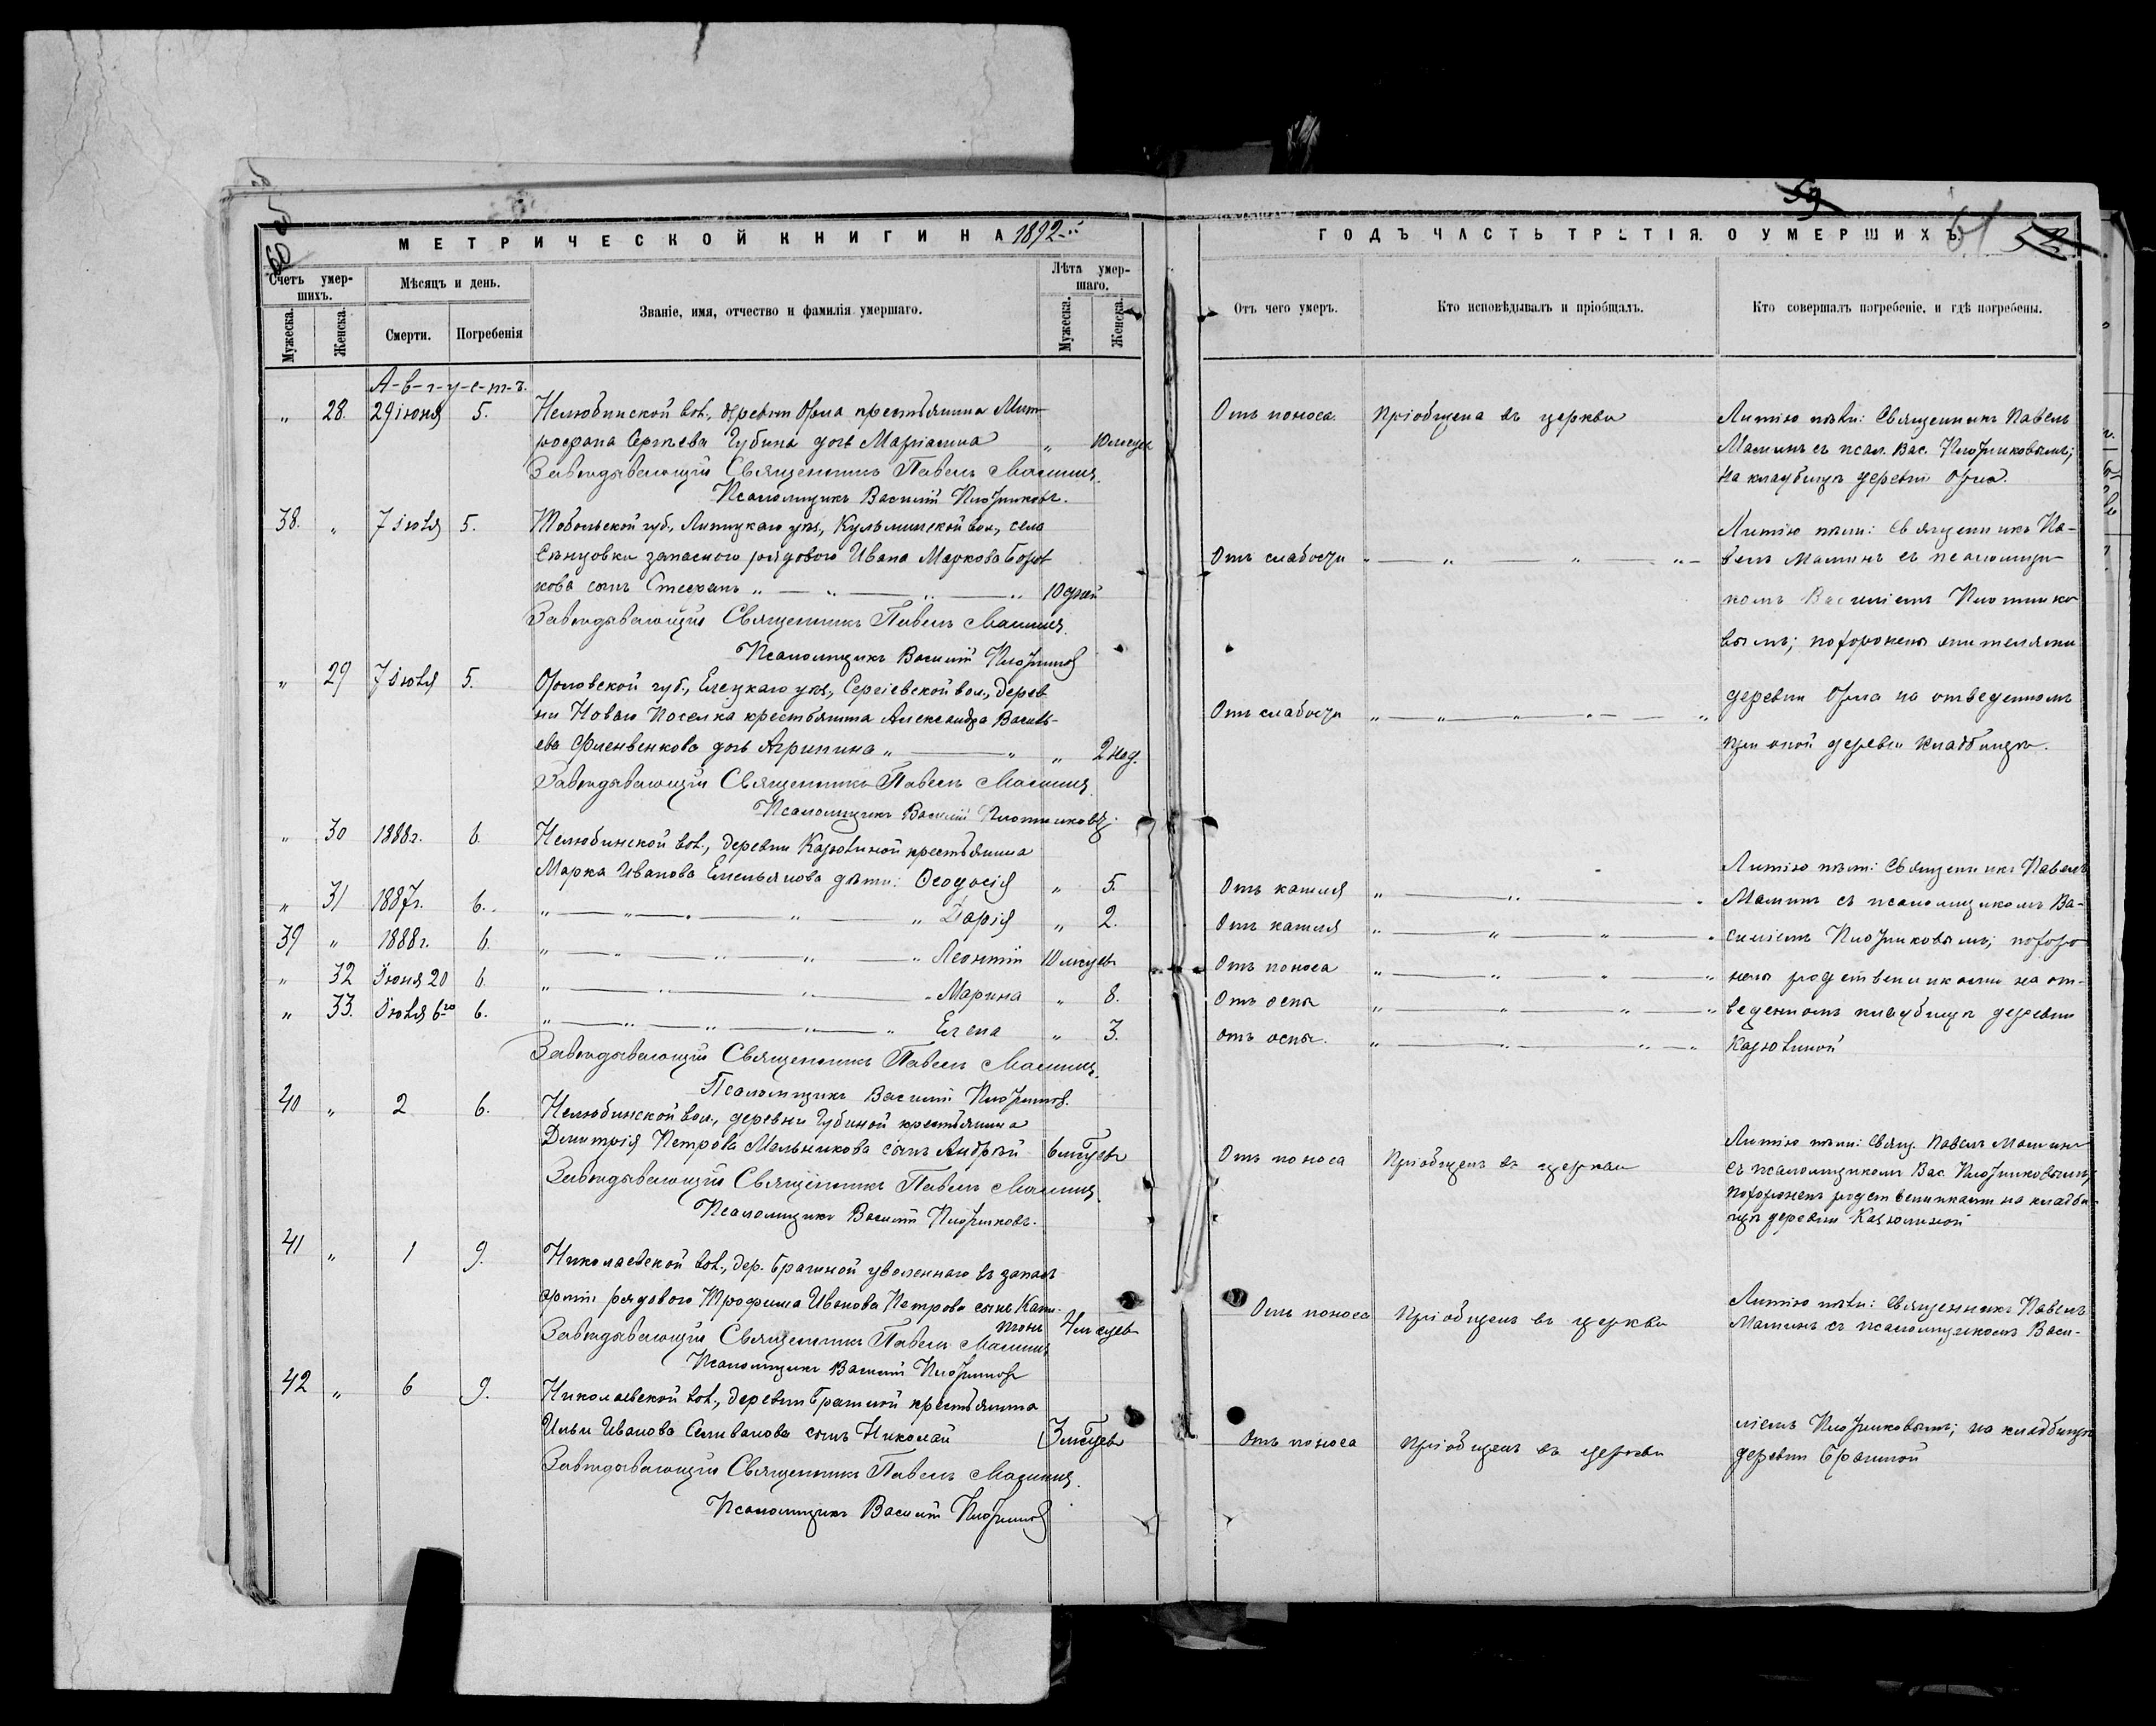 МЕТРИЧЕСКОЙ КНИГИ НА 1892
Счетъ умер-
шихъ.
Мѣсяцъ и день.
Званіе, имя, отчество и фамилія умершаго.
Лѣта умер-
шаго.
Мужеска.
Женска.
Смерти.
Погребенія
Мужеска.
Женска.
А-в-г-у-с-т-ъ.
„ 28. 29 іюня 5. Нелюбинской вол., деревни Орла крестьянина Мит-
рофана Сергѣева Губина дочь Маріанна „ 10 мѣсяц
Завѣдывающій Священникъ Павелъ
Псаломщикъ Василій Плотниковъ.
38. „ 7 іюля 5. Тобольской губ., уѣз., вол., села
запаснаго рядового Ивана Маркова
кова сынъ Стефанъ „ — „ — „ 10 дней
Завѣдывающій Священникъ Павелъ
Псаломщикъ Василій Плотниковъ
„ 29 7 іюля 5. Орловской губ., Елецкаго уѣз., Сергіевской вол., дерев
ни Новаго Поселка крестьянина Александра Василь-
ева дочь Агрипина „ — „ „ 2 нед.
Завѣдывающій Священникъ Павелъ
Псаломщикъ Василій Плотниковъ.
„ 30 1888г. 6. Нелюбинской вол., деревни Карюлиной крестьянина
Марка Иванова Емельянова дѣти: Ѳеодосія „ 5.
„ 31 1887г. 6. „ — „ — „ — „ Дарія „ 2.
39 „ 1888г. 6. „ — „ — „ — „ Леонтій 10 мѣсяцев
„ 32 Іюня 20 6. „ — „ — „ — „ Марина „ 8.
„ 33. Іюля 6го 6. „ — „ — „ — „ Елена „ 3.
Завѣдывающій Священникъ Павелъ
Псаломщикъ Василій Плотниковъ.
40 „ 2 6. Нелюбинской вол., деревни Губиной крестьянина
Димитрія Петрова Мельникова сынъ Андрей 6 мѣсяцевъ
Завѣдывающій Священникъ Павелъ
Псаломщикъ Василій Плотниковъ.
41 „ 1 9. Николаевской вол., дер. уволеннаго въ запасъ
арміи рядового Трофима Иванова Петрова сынъ
4 мѣсяцев
Завѣдывающій Священникъ Павелъ
Псаломщикъ Василій Плотниковъ
42 „ 6 9. Николаевской вол., деревни крестьянина
Ильи Иванова Селиванова сынъ Николай 3 мѣсяцев
Завѣдывающій Священникъ Павелъ
Псаломщикъ Василій Плотниковъ
59
61
ГОДЪ ЧАСТЬ ТРЕТІЯ. О УМЕРШИХЪ.
Отъ чего умеръ.
Кто исповѣдывалъ и пріобщалъ.
Кто совершалъ погребеніе, и гдѣ погребены.
Отъ поноса. Пріобщена въ церкви Литію пѣли: Священникъ Павелъ
съ псал. Вас. Плотниковымъ;
на кладбищѣ деревни Орла.
Литію пѣли: Священникъ Па-
Отъ слабости „ — „ — „ — „ велъ съ псаломщи
комъ Василіемъ Плотнико
вымъ; похоронены жителями
деревни Орла на отведенномъ
Отъ слабости „ — „ — „ — „
при оной деревни кладбищѣ.
Литію пѣли: Священникъ Павелъ
Отъ кашля „ — „ — „ съ псаломщикомъ Ва-
Отъ кашля „ — „ — „ — „ силіемъ Плотниковымъ; похоро
Отъ поноса „ — „ — „ — „ нены родственниками на от-
Отъ оспы „ — „ — „ — „ веденномъ кладбищѣ деревни
отъ оспы. „ — „ — „ — „ Карюлиной
Литію пѣли: Свящ. Павелъ
Отъ поноса Пріобщенъ въ церкви съ псаломщикомъ Вас. Плотниковымъ;
похороненъ родственниками на кладби-
щѣ деревни Карюлиной
Отъ поноса Пріобщенъ въ церкви Литію пѣли: Священникъ Павелъ
съ псаломщикомъ Васи-
Отъ поноса Пріобщенъ въ церкви ліемъ Плотниковымъ; на кладбищѣ
деревни